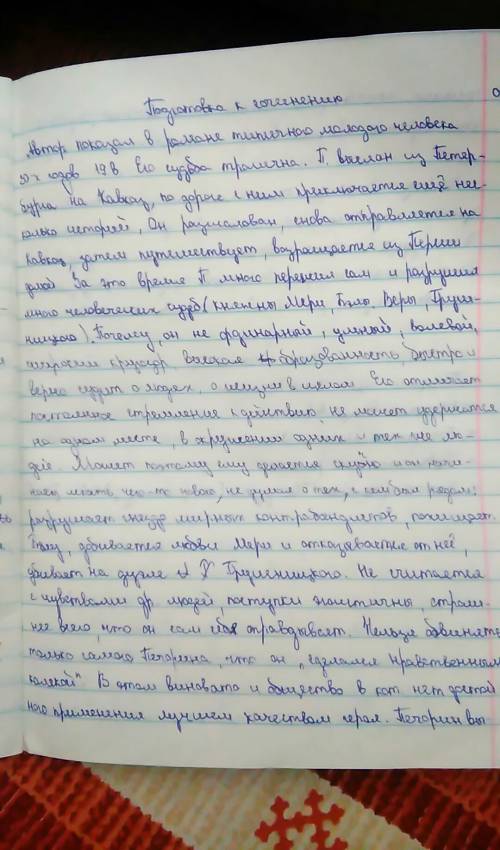 Подготовка к сочинению
Автор показал в романе типичного молодого человека
30-х годов 19 в Его судьба трагична. П. выслан из Петер-
бурга на Кавказ, по дороге с ним приключается ещё нес-
колько историй, Он разжалован, снова отправляется на
Кавказ, затем путешествует, возращается из Персии
домой За это время П много пережил сам и разрушил
много человеческих судеб (княжны Мери, Бэлы Веры, Груш-
ницкого). Почему, он не ординарный, умный, волевой,
широкий кругозор, высокая образованность, быстро и
верно судит о людях, о жизни в целом Его отличает
постоянное стремление к действию не может удержатся
на одном месте, в окружении одних и тех же лю-
дей. Может поэтому ему делается скучно и он начи-
нает искать что-то новое, не думая о тех, с кем был рядом:
разрушает гнездо мирных контрабандистов, похищает
Бэлу, добивается любви Мери и отказывается от неё,
убивает на дуэле Грушницкого. Не считается
с чувствами др. людей, поступки эгоистичны, стран-
нее всего, что он сам себя оправдывает. Нельзя обвинять
только самого Печорина, что он "сделался нравственным
калекой" В этом виновато и общество в кот нет достой
ного применения лучшем качествам героя. Печорин вы